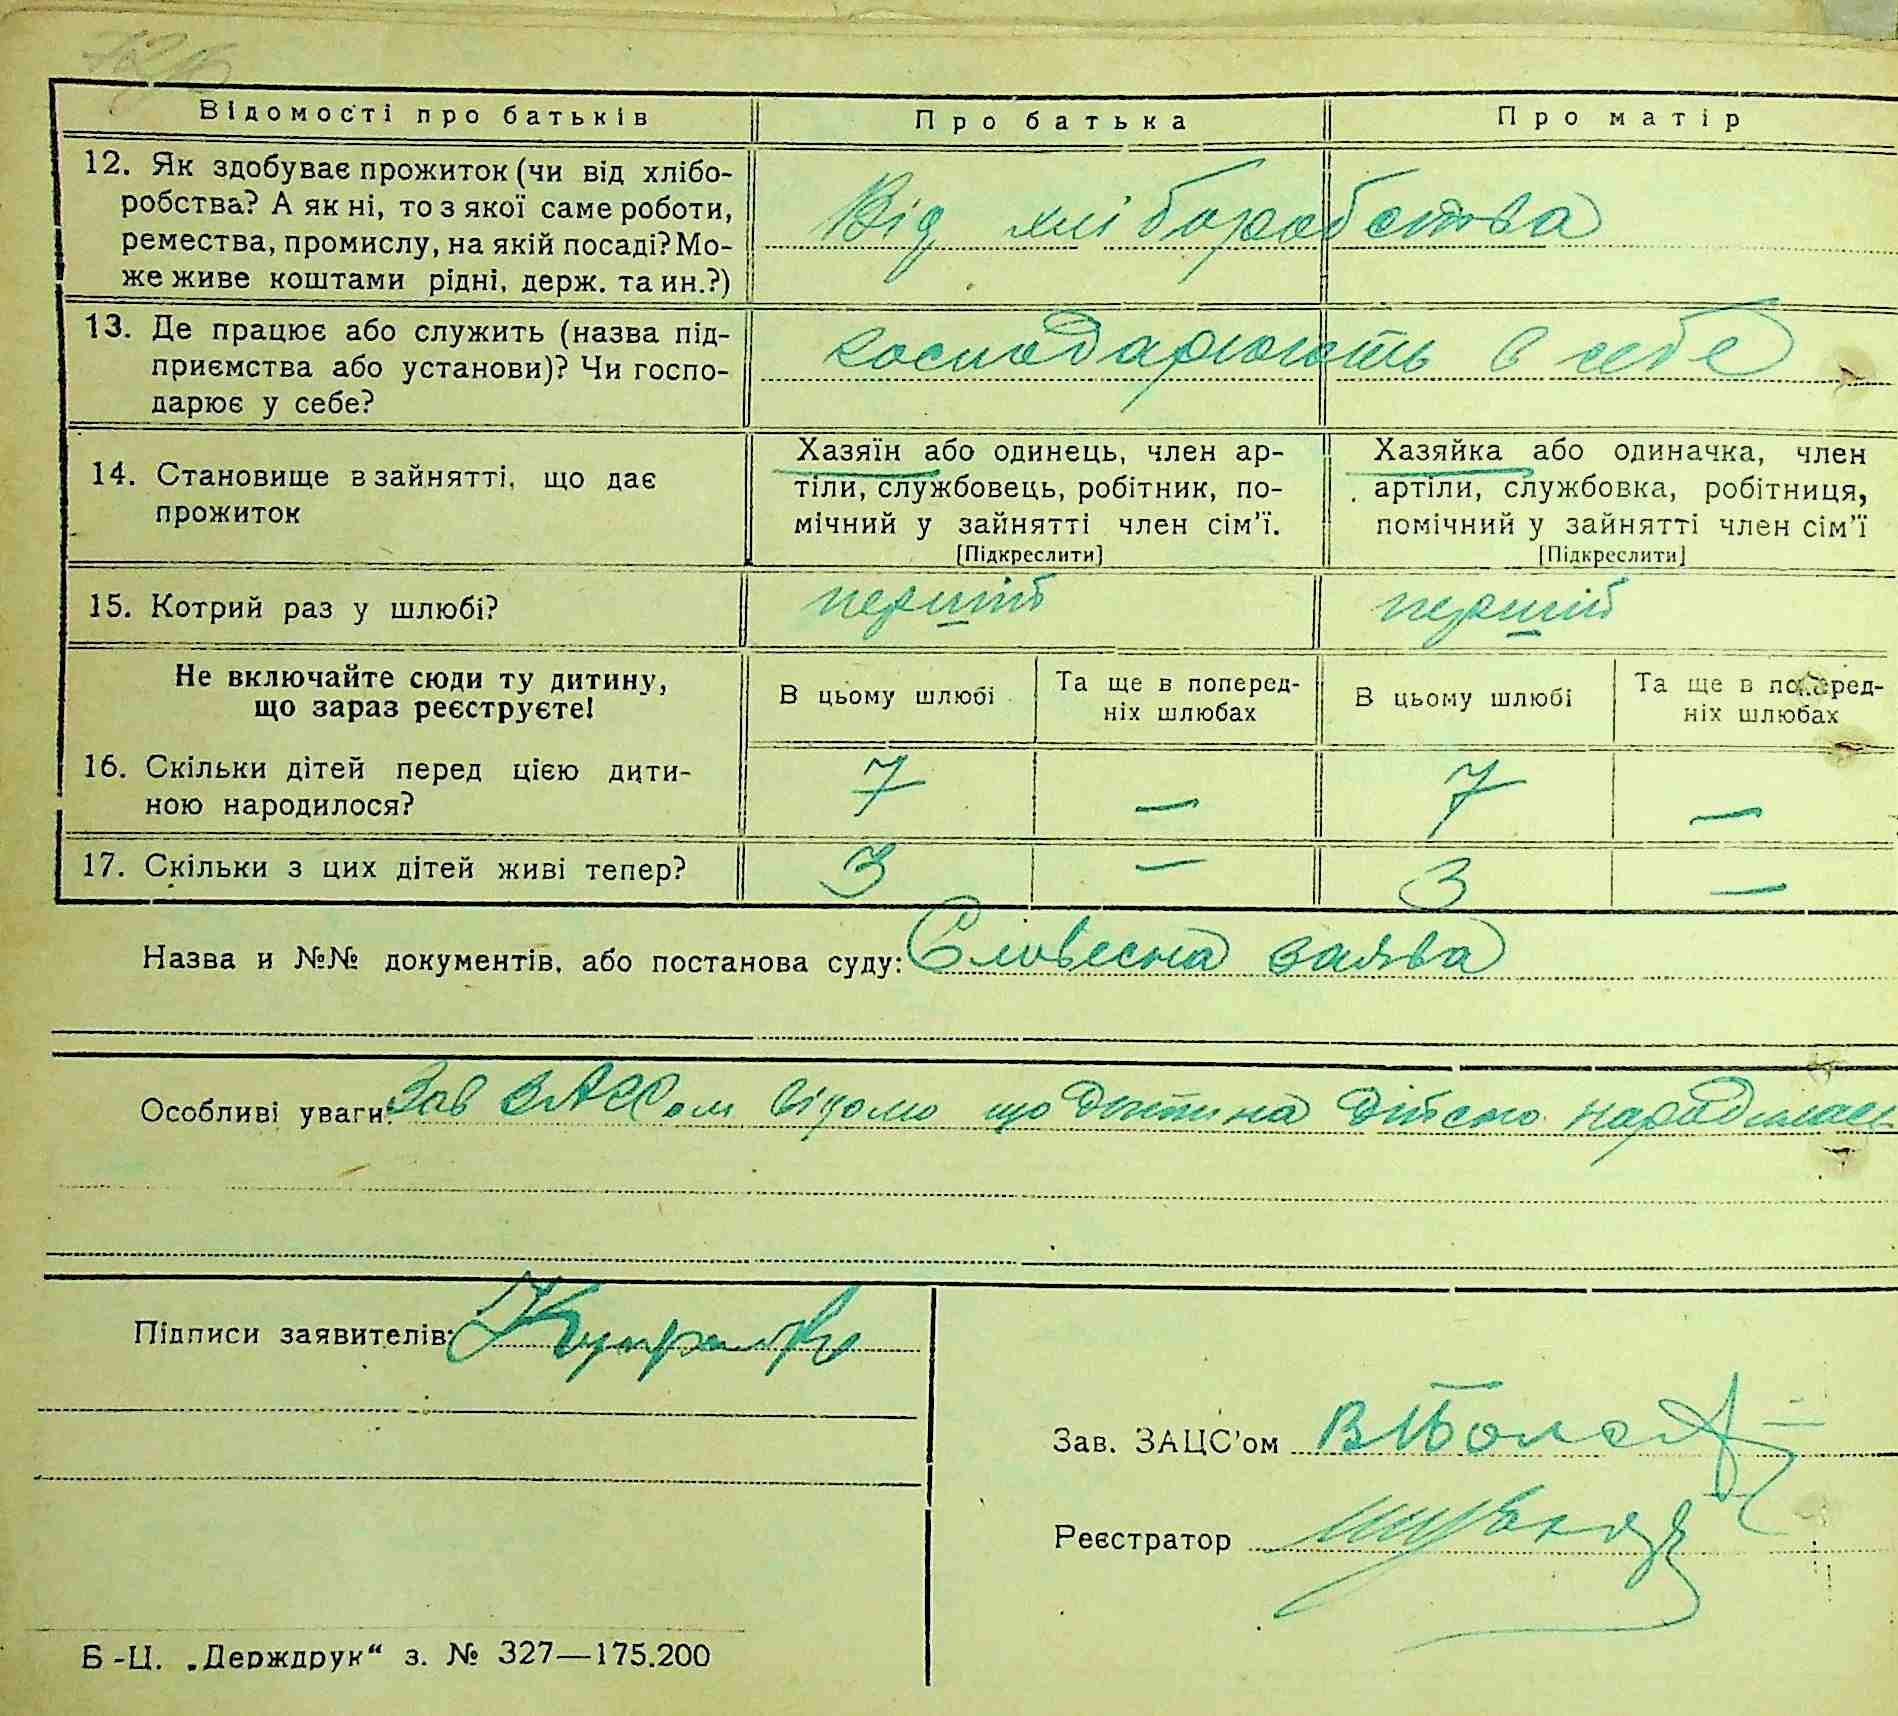 Відомості про батьків Про батька Про матір
12. Як здобуває прожиток (чи від хлібо-
робства? А як ні, то з якої саме роботи,
ремества, промислу, на якій посаді? Мо-
же живе коштами рідні, держ. та ин.?)
Від хліборобства
13. Де працює або служить (назва під-
приємства або установи)? Чи госпо-
дарює у себе?
господарюють в себе
14. Становище в зайнятті, що дає
прожиток
Хазяїн або одинець, член ар-
тіли, службовець, робітник, по-
мічний у зайнятті член сім'ї.
[Підкреслити]
Хазяйка або одиначка, член
артіли, службовка, робітниця,
помічний у зайнятті член сім'ї
[Підкреслити]
15. Котрий раз у шлюбі? перший перший
Не включайте сюди ту дитину,
що зараз реєструєте!
В цьому шлюбі
Та ще в поперед-
ніх шлюбах
В цьому шлюбі
Та ще в поперед-
ніх шлюбах
16. Скільки дітей перед цією дити-
ною народилося?
7 — 7 —
17. Скільки з цих дітей живі тепер? 3 — 3 —
Назва и №№ документів, або постанова суду: Словесна заява
Особливі уваги: Зав ЗАГСом відомо що дитина дійсно народилась
Підписи заявителів:
Зав. ЗАЦС'ом
Реєстратор
Б-Ц. „Держдрук“ з. № 327—175.200